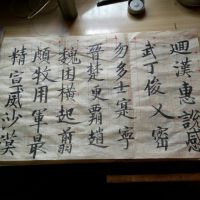 迴漢惠說感
武丁俊乂密
勿多士寔寧
晉楚更霸趙
魏困橫起翦
頗牧用軍最
精宣威沙漠